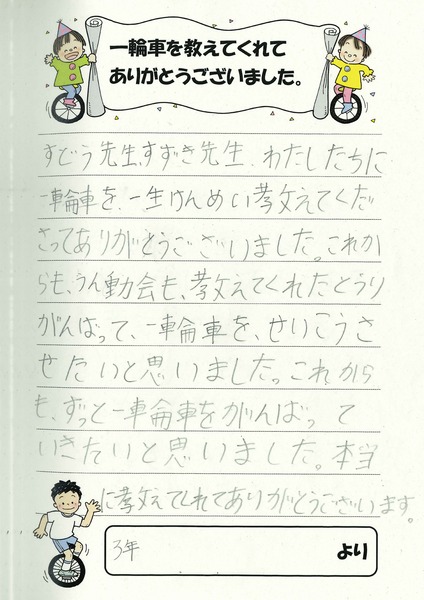 一輪車を教えてくれて
ありがとうございました。
すどう先生、すずき先生、わたしたちに
一輪車を、一生けんめい教えてくだ
さってありがとうございました。これか
らも、うん動会も、教えてくれたとうり
がんばって、一輪車を、せいこうさ
せたいと思いました。これから
も、ずっと一輪車をがんばって
いきたいと思いました。本当
に教えてくれてありがとうございます。
3年
より